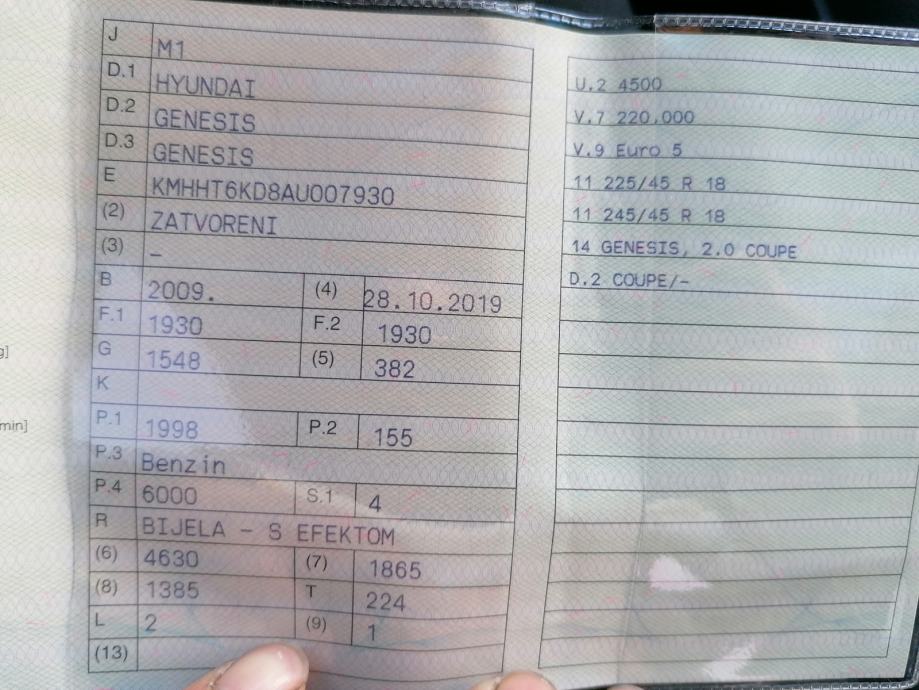 J M1
D.1 HYUNDAI
D.2 GENESIS
D.3 GENESIS
E KMHHT6KD8AU007930
(2) ZATVORENI
(3) –
B 2009. (4) 28.10.2019
F.1 1930 F.2 1930
G 1548 (5) 382
K
P.1 1998 P.2 155
P.3 Benzin
P.4 6000 S.1 4
R BIJELA – S EFEKTOM
(6) 4630 (7) 1865
(8) 1385 T 224
L 2 (9) 1
(13)
U.2 4500
V.7 220,000
V.9 Euro 5
11 225/45 R 18
11 245/45 R 18
14 GENESIS, 2.0 COUPE
D.2 COUPE/-
g]
min]